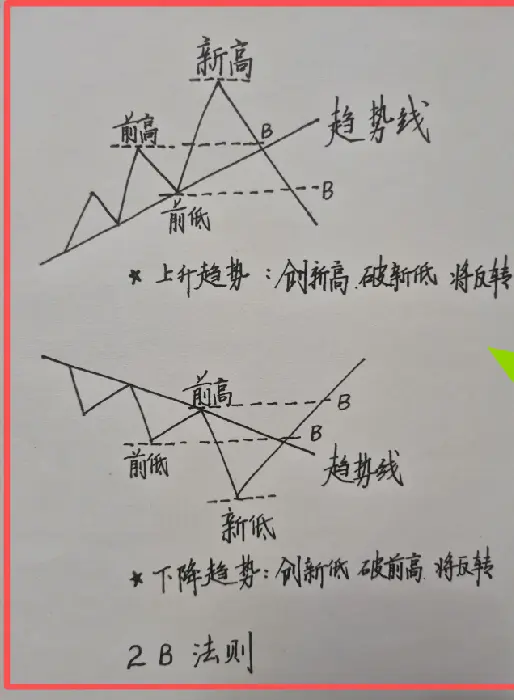 新高
前高
B
趋势线
B
前低
* 上升趋势：创新高 破新低 将反转
前高
B
B
前低
趋势线
新低
* 下降趋势：创新低 破前高 将反转
2B 法则